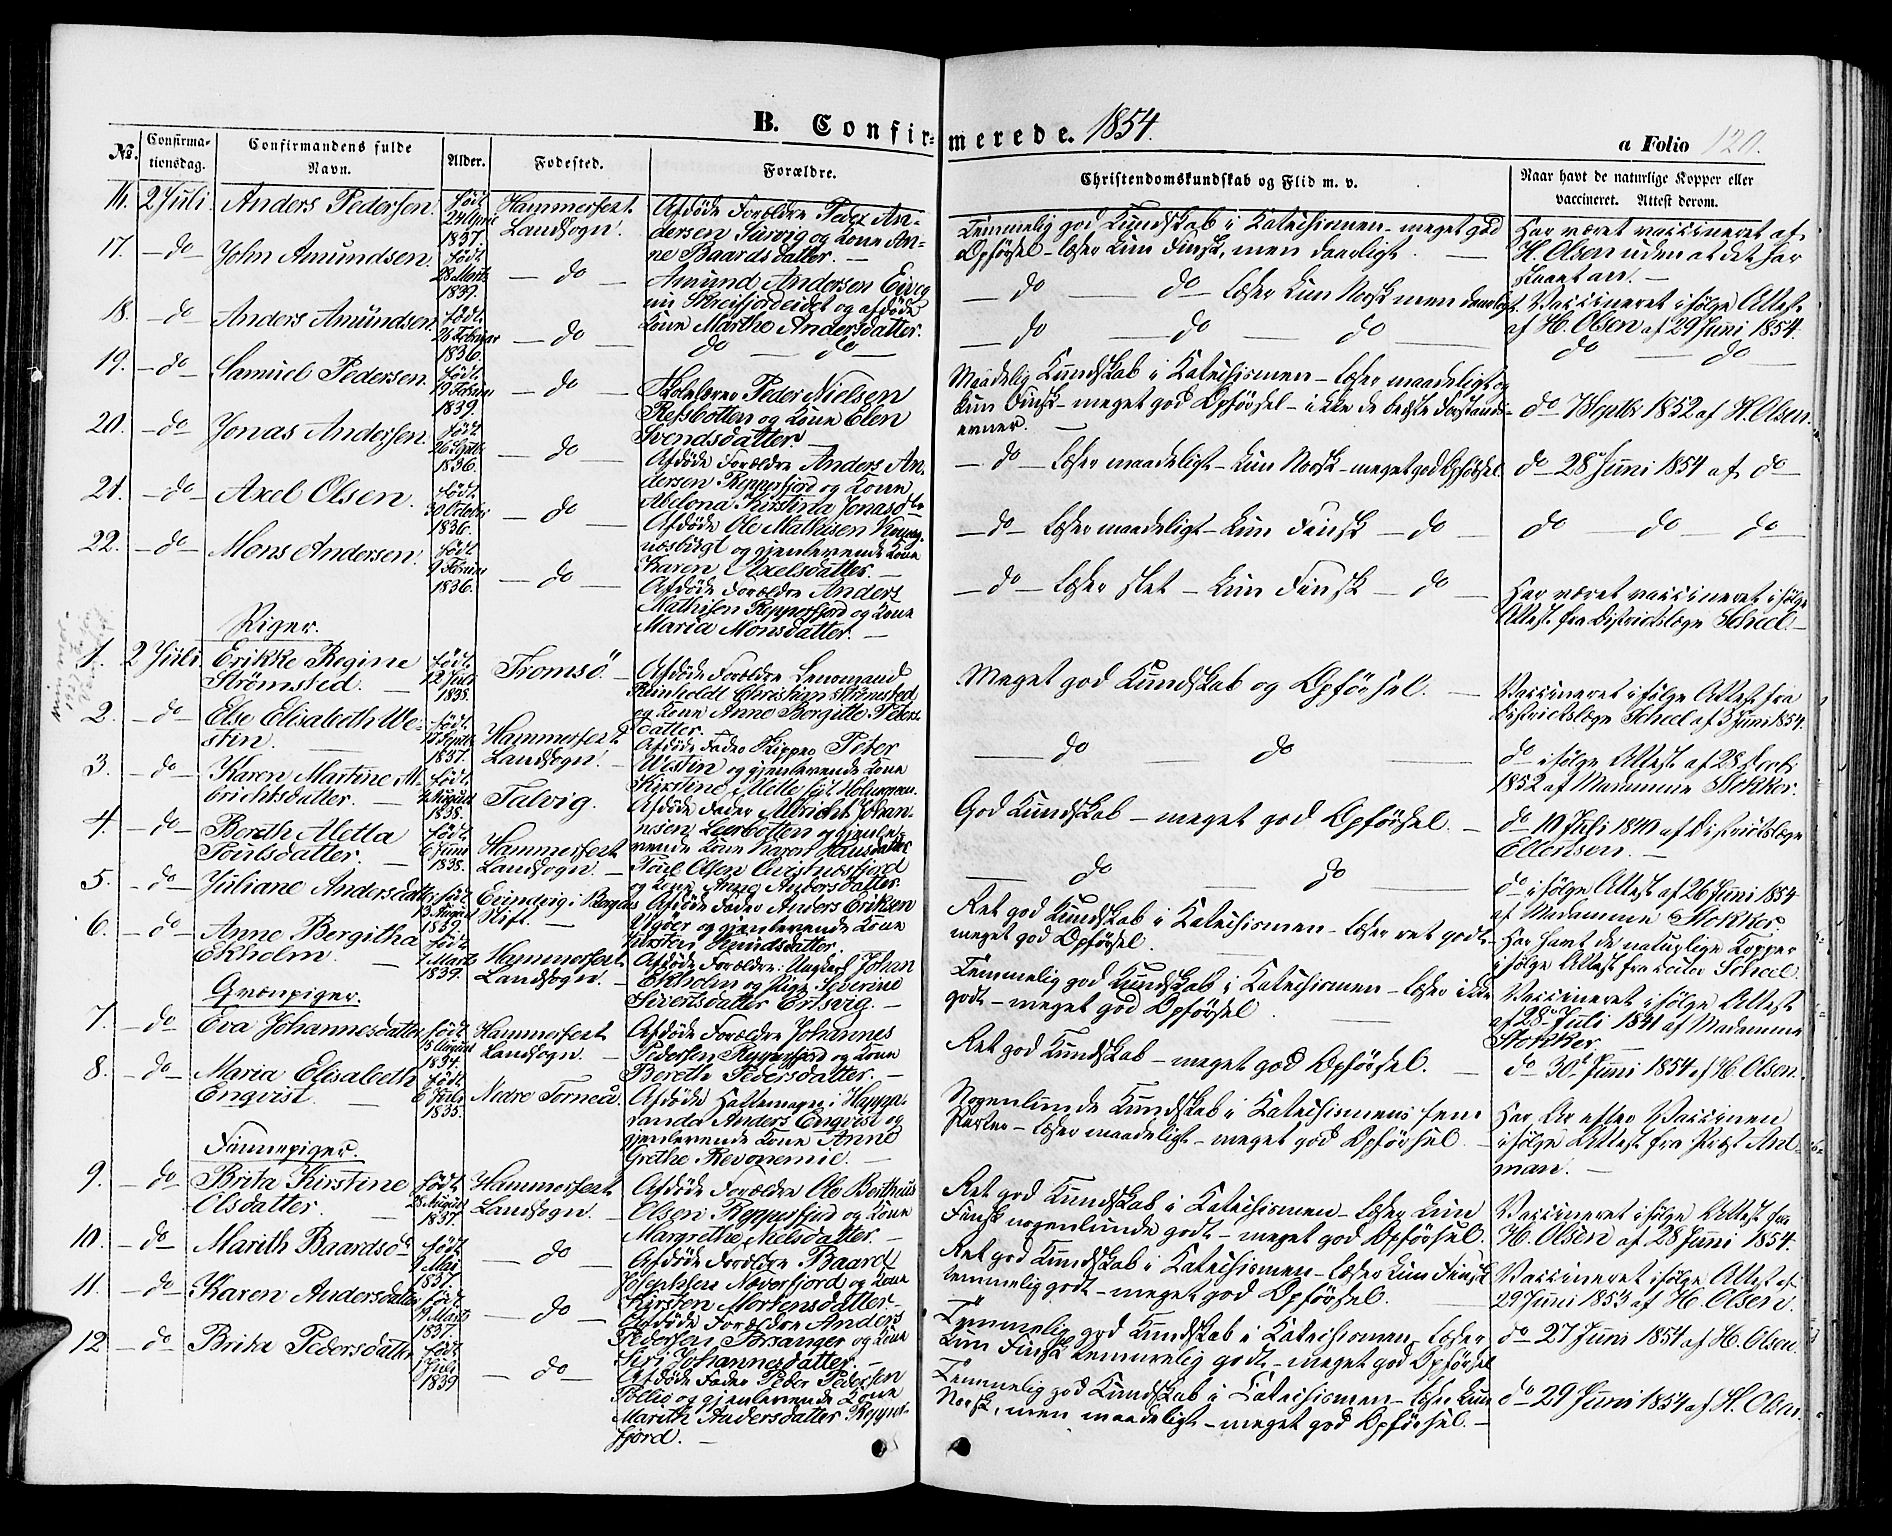 B. Confir-merede. 1854.
a Folio 120.
No. Confirma-tionsdag. Confirmandens fulde Navn. Alder. Fødested. Forældre. Christendomskundskab og Flid m. v. Naar havt de naturlige Kopper eller vaccineret. Attest derom.
16. 2 Juli. Anders Pedersen. født 1837. Hammerfest Landsogn. Afdøde Forældre Peder An-
dersen og Kone An-
ne Baardsdatter. —
Temmelig god Kundskab i Katechismen – meget god
Opførsel – læser kun Finsk, men daarligt. —
Har været vaccineret af
H. Olsen uden at det har
slaaet an. —
17. – do – John Amundsen. født 28 Marts 1839. – do –
Amund Andersen
og afdøde
Kone Marthe Andersdatter.
– do – do – læser kun Norsk men daarligt.
Vaccineret ifølge Attest
af H. Olsen af 29 Juni 1854.
18. – do – Anders Amundsen. født 26 Februar 1836. – do –
do – do –
– do – do – do –
do – do –
19. – do – Samuel Pedersen. født 19 Februar 1839. – do –
Skolelærer Peder Nielsen
Refsbotten og Kone Elen
Svendsdatter. —
Maadelig Kundskab i Katechismen – læser maadeligt og
kun Finsk – meget god Opførsel – ikke de bedste Forstands-
evner. —
do 7 Septbr 1852 af H. Olsen.
20. – do – Jonas Andersen. født 26 Septbr 1836. – do –
Afdøde Forældre Anders An-
dersen Repperfjord og Kone
Abelona Kirstina Jonasdtr
– do – læser maadeligt – kun Norsk – meget god Opførsel.
do 28 Juni 1854 af do –
21. – do – Axel Olsen. født 30 October 1836. – do –
Afdøde Ole Mathisen
og gjenlevende Kone
Karen Axelsdatter. —
– do – læser maadeligt – kun Finsk – do –
do – do – do
22. – do – Mons Andersen. født 9 Februar 1836. – do –
Afdøde Forældre Anders
Mathisen Repperfjord og Kone
Maria Monsdatter. —
– do – læser slet – kun Finsk – do –
Har været vaccineret ifølge
Attest fra Districtslæge Scheel –
Piger.
1. 2 Juli. Erikke Regine
Strømsted. — født 12 Juli 1838. Tromsö.
Afdøde Forældre Lensmand
Reinholdt Christian Strømsted
og Kone Anne Bergitte Peters-
datter. —
Meget god Kundskab og Opførsel. —
Vaccineret ifølge Attest fra
Districtslæge Scheel af 3 Juni 1854.
2. – do – Else Elisabeth We-
stin. — født 1837. Hammerfest Landsogn.
Afdøde Fader Skipper Peter
Westin og gjenlevende Kone
Kirstine Mette
— do — do —
do ifølge Attest af 28
1852 af Madamme Stokker.
3. – do – Karen Martine Al-
brichtsdatter. — født August 1838. Talvig.
Afdøde Fader Albricht Johan-
nesen Leerbotten og gjenle-
vende Kone Karen Hansdatter
God Kundskab – meget god Opførsel. —
do 10 Juli 1840 af Districtslæge
Ellertsen. —
4. – do – Bereth Aletta
Poulsdatter. — født 6 Juni 1838. Hammerfest Landsogn. –
Poul Olsen Qvistnæsfjord
og Kone Anne Andersdatter.
— do — do —
do ifølge Attest af 26 Juni 1854
af Madamme Stokker.
5. – do – Juliane Andersdatter. født August 1839. Evindvig i Bergens Stift. —
Afdøde Fader Anders Eriksen
og gjenlevende Kone
Kirsten Knudsdatter.
Ret god Kundskab i Katechismen – læser ret godt –
meget god Opførsel. —
Har havt de naturlige Kopper
ifølge Attest fra Scheel
6. – do – Anne Bergitha
Ekholm. — født 1 Marts 1839. Hammerfest Landsogn. –
Afdøde Forældre: Ungkarl Johan
Ekholm og Pige Severine
Sivertsdatter Ertsvig. —
Temmelig god Kundskab i Katechismen – læser ikke
godt – meget god Opførsel. —
Vaccineret ifølge Attest
af 28 Juli 1841 af Madamme
Stokker —
Qvænpiger.
7. – do – Eva Johannesdatter født 15 August 1834. Hammerfest Landsogn. –
Afdøde Forældre Johannes
Pedersen Repperfjord og Kone
Bereth Pedersdatter. —
Ret god Kundskab – meget god Opførsel. —
do 30 Juni 1854 af H. Olsen.
8. – do – Maria Elisabeth
Enqvist. — født 6 Juli 1835. Nedre Torneå.
Afdøde
Anders Enqvist og
gjenlevende Kone Anne
Grethe Revonemie. —
Nogenlunde Kundskab i Katechismens fem
Parter – læser maadeligt – meget god Opførsel. –
Har Ar efter Vaccinen
ifølge Attest fra Præst Ahl-
man. —
Finnepiger.
9. – do – Brita Kirstine
Olsdatter. — født 28 August 1837. Hammerfest Landsogn. –
Afdøde Forældre Ole Bertheus
Olsen Repperfjord og Kone
Margrethe Nielsdatter. —
Ret god Kundskab i Katechismen – læser kun
Finsk nogenlunde godt – meget god Opførsel.
Vaccineret ifølge Attest fra
H. Olsen af 28 Juni 1854.
10. – do – Marith Baardsdr født Mai 1837. — do —
Afdøde Forældre Baard
Josephsen Næverfjord og Kone
Kirsten Mortensdatter. –
Ret god Kundskab i Katechismen – læser kun Finsk
temmelig godt – meget god Opførsel. —
Vaccineret ifølge Attest af
29 Juni 1853 af H. Olsen.
11. – do – Karen Andersdatter født 19 Marts 1837. — do —
Afdøde Forældre Anders
Pedersen Porsanger og Kone
Siri Johannesdatter. —
Temmelig god Kundskab i Katechismen – læser
kun Finsk temmelig godt – meget god Opførsel
do 27 Juni 1854 af H. Olsen.
12 – do – Brita Pedersdatter født 1 Juli 1839 — do —
Afdøde Fader Peder Pedersen
Pollio og gjenlevende Kone
Marith Andersdatter Repper-
fjord. —
Temmelig god Kundskab i Katechismen – læser kun
Norsk, men maadeligt – meget god Opførsel. –
do 29 Juni 1854 af H. Olsen.